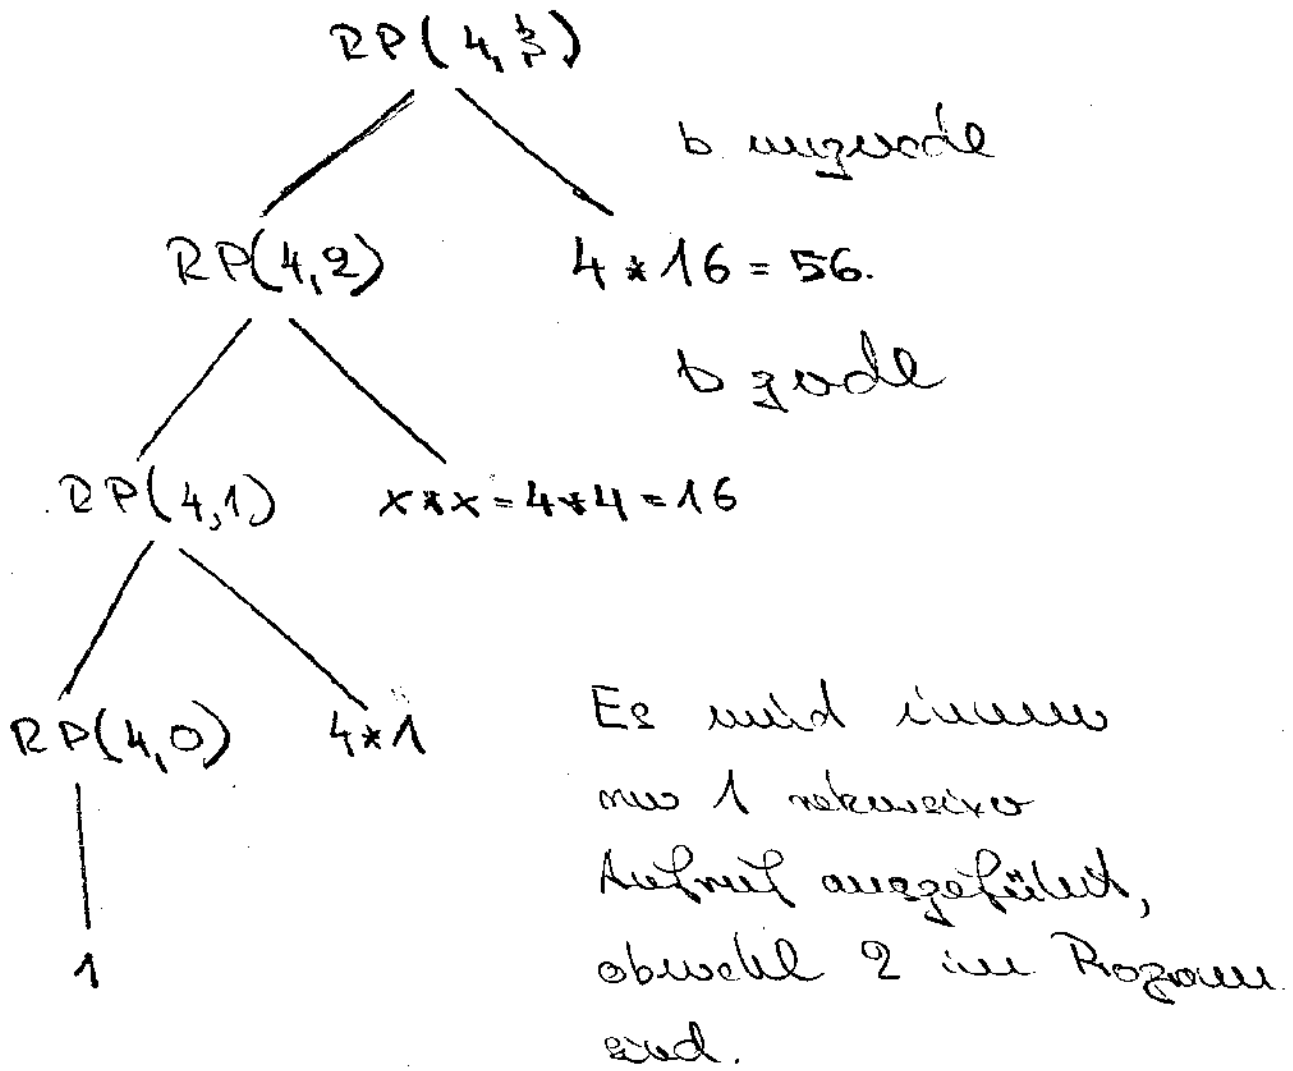 RP(4,3)
b ungerade
RP(4,2)
4 * 16 = 56.
b gerade
RP(4,1)
x*x = 4*4 = 16
RP(4,0)
4*1
Es wird immer
nur 1 rekursiver
Aufruf ausgeführt,
obwohl 2 im Program
sind.
1